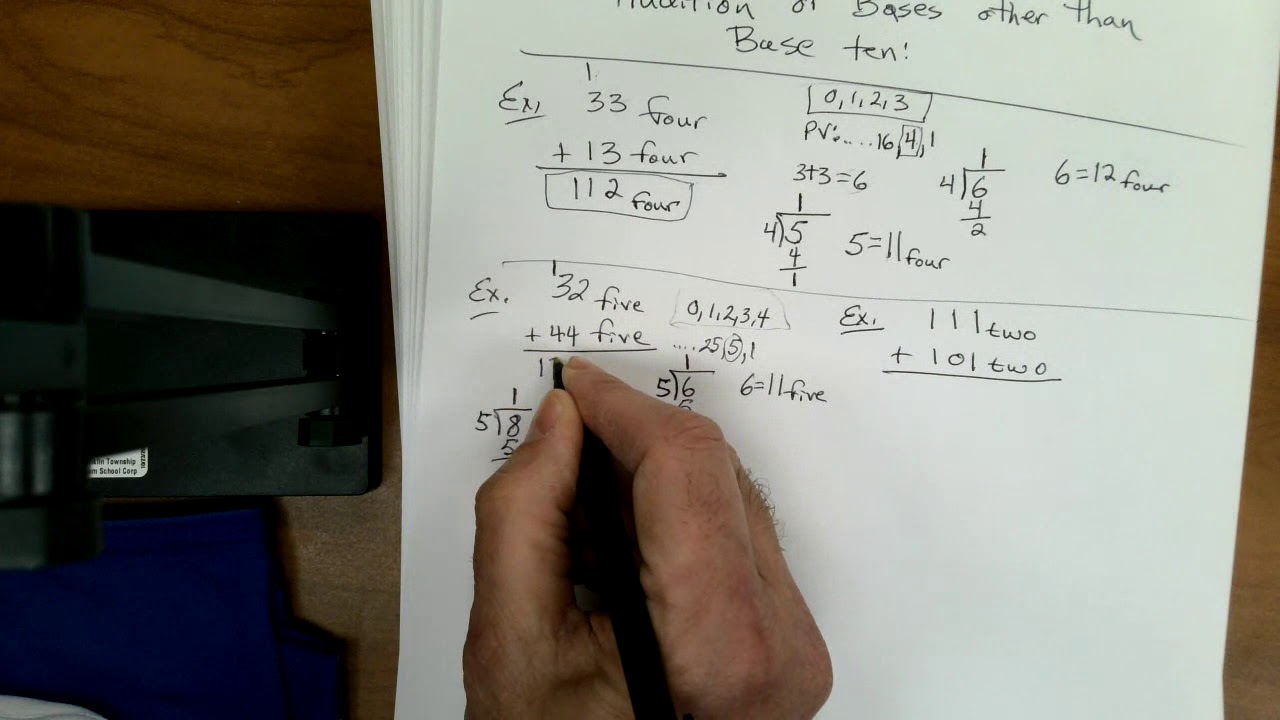 Addition of Bases other than
Base ten!
Ex, 1 33 four
+ 13 four
112 four
0, 1, 2, 3
PV: .....16, 4, 1
3+3=6
1
4)6
4
2
6=12 four
1
4)5
4
1
5=11 four
Ex. 1 32 five
+ 44 five
0, 1, 2, 3, 4
....25, 5, 1
1
5)6
5
6=11 five
1
5)8
5
Ex. 111 two
+ 101 two
Township
School Corp